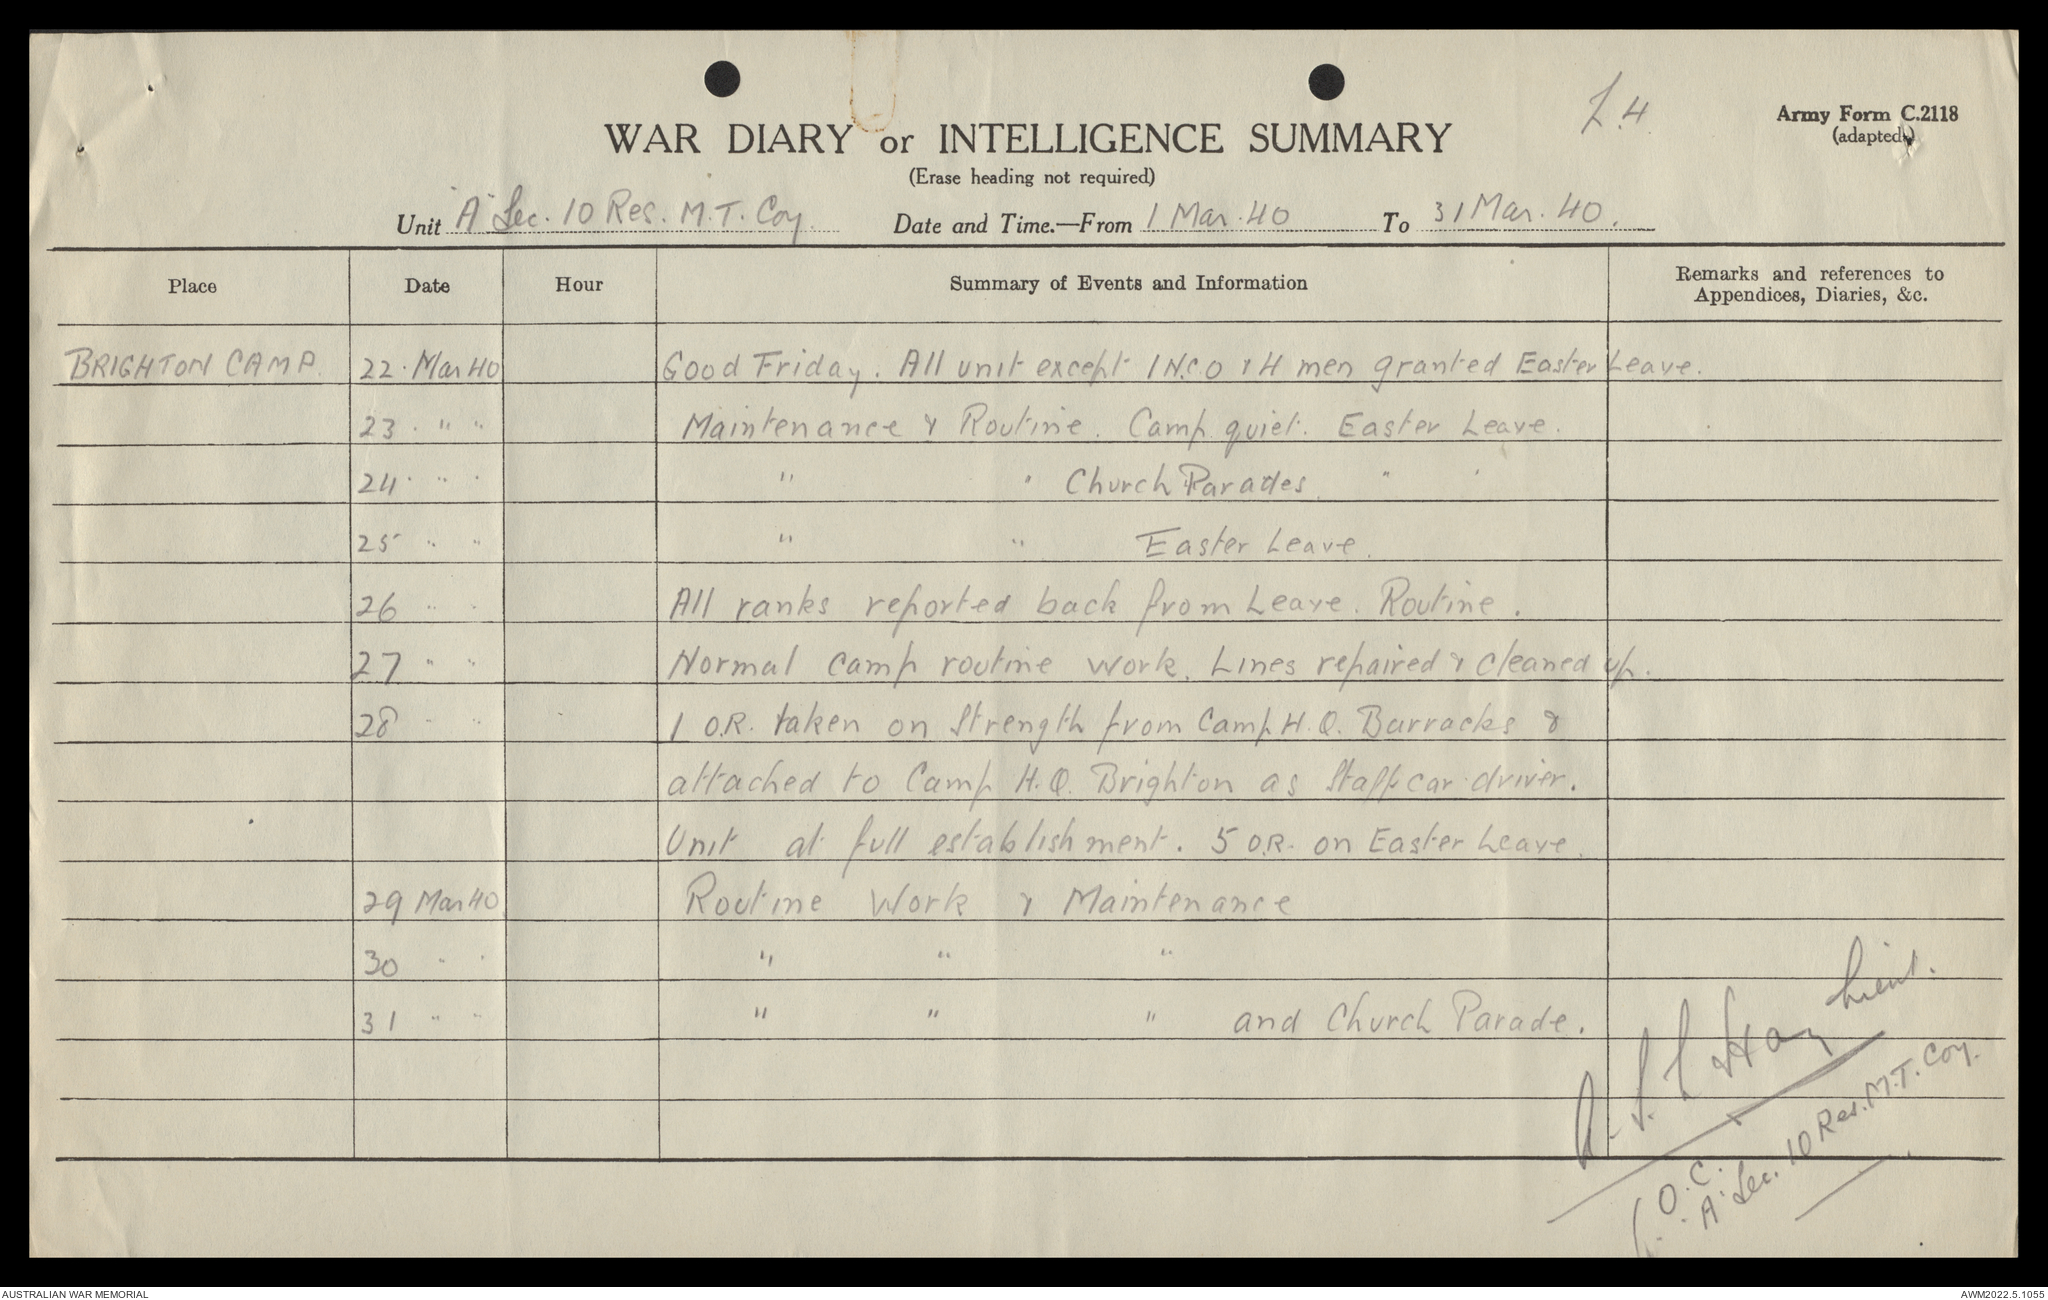 f.4
Army Form C.2118
(adapted)
WAR DIARY or INTELLIGENCE SUMMARY
(Erase heading not required)
Unit "A" Sec. 10 Res. M.T. Coy. Date and Time.—From 1 Mar. 40 To 31 Mar. 40.
Place Date Hour Summary of Events and Information Remarks and references to Appendices, Diaries, &c.
BRIGHTON CAMP. 22. Mar 40 Good Friday. All unit except 1 N.C.O & 4 men granted Easter Leave.
23. " " Maintenance & Routine. Camp quiet. Easter Leave.
24. " " " " Church Parades. " "
25 " " " " Easter Leave.
26 " " All ranks reported back from Leave. Routine.
27 " " Normal camp routine work. Lines repaired & cleaned up.
28 " " 1 O.R. taken on strength from Camp H.Q. Barracks &
attached to Camp H.Q. Brighton as Staff car driver.
Unit at full establishment. 5 O.R. on Easter Leave.
29 Mar 40 Routine Work & Maintenance
30 " " " " "
31 " " " " " and Church Parade.
Hay Lieut.
O.C.
"A" Sec. 10 Res. M.T. Coy.
AUSTRALIAN WAR MEMORIAL
AWM2022.5.1055